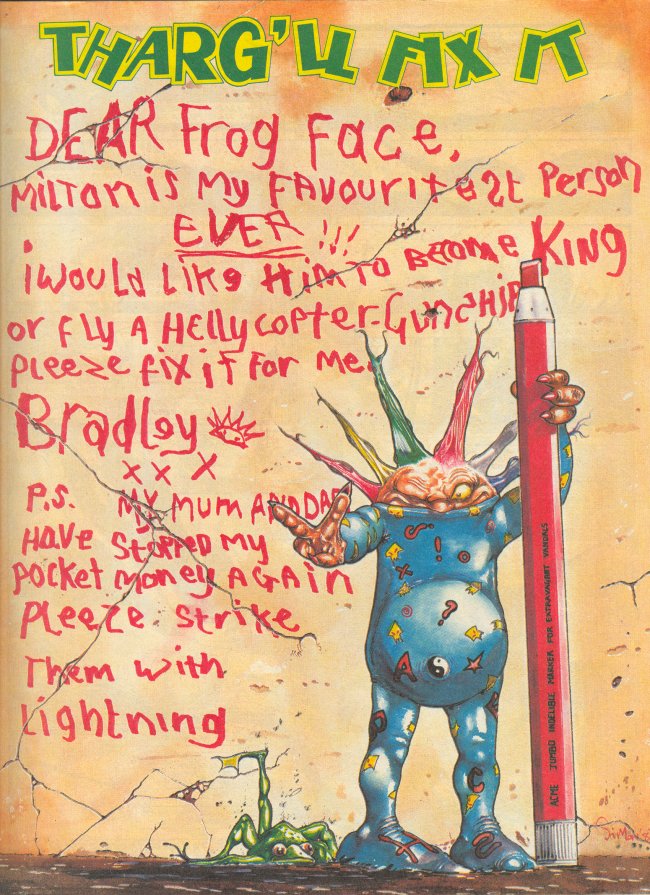 THARG'LL FIX IT
DEAR Frog Face,
MILTON iS MY FAVOURITEST Person
EVER!!!
i WOULD LIKE HIM TO BECOME KING
or FLY A HELLYCOPTER-GUNSHIP
PLEEZE fiX iT FOR ME.
Bradley
x x x
P.S. MY MUM AND DAD
HAVE STOPPED MY
POCKET MONEY AGAIN
PLEEZE Strike
Them with
Lightning
ACME JUMBO INDELIBLE MARKER FOR EXTRAVAGANT VANDALS